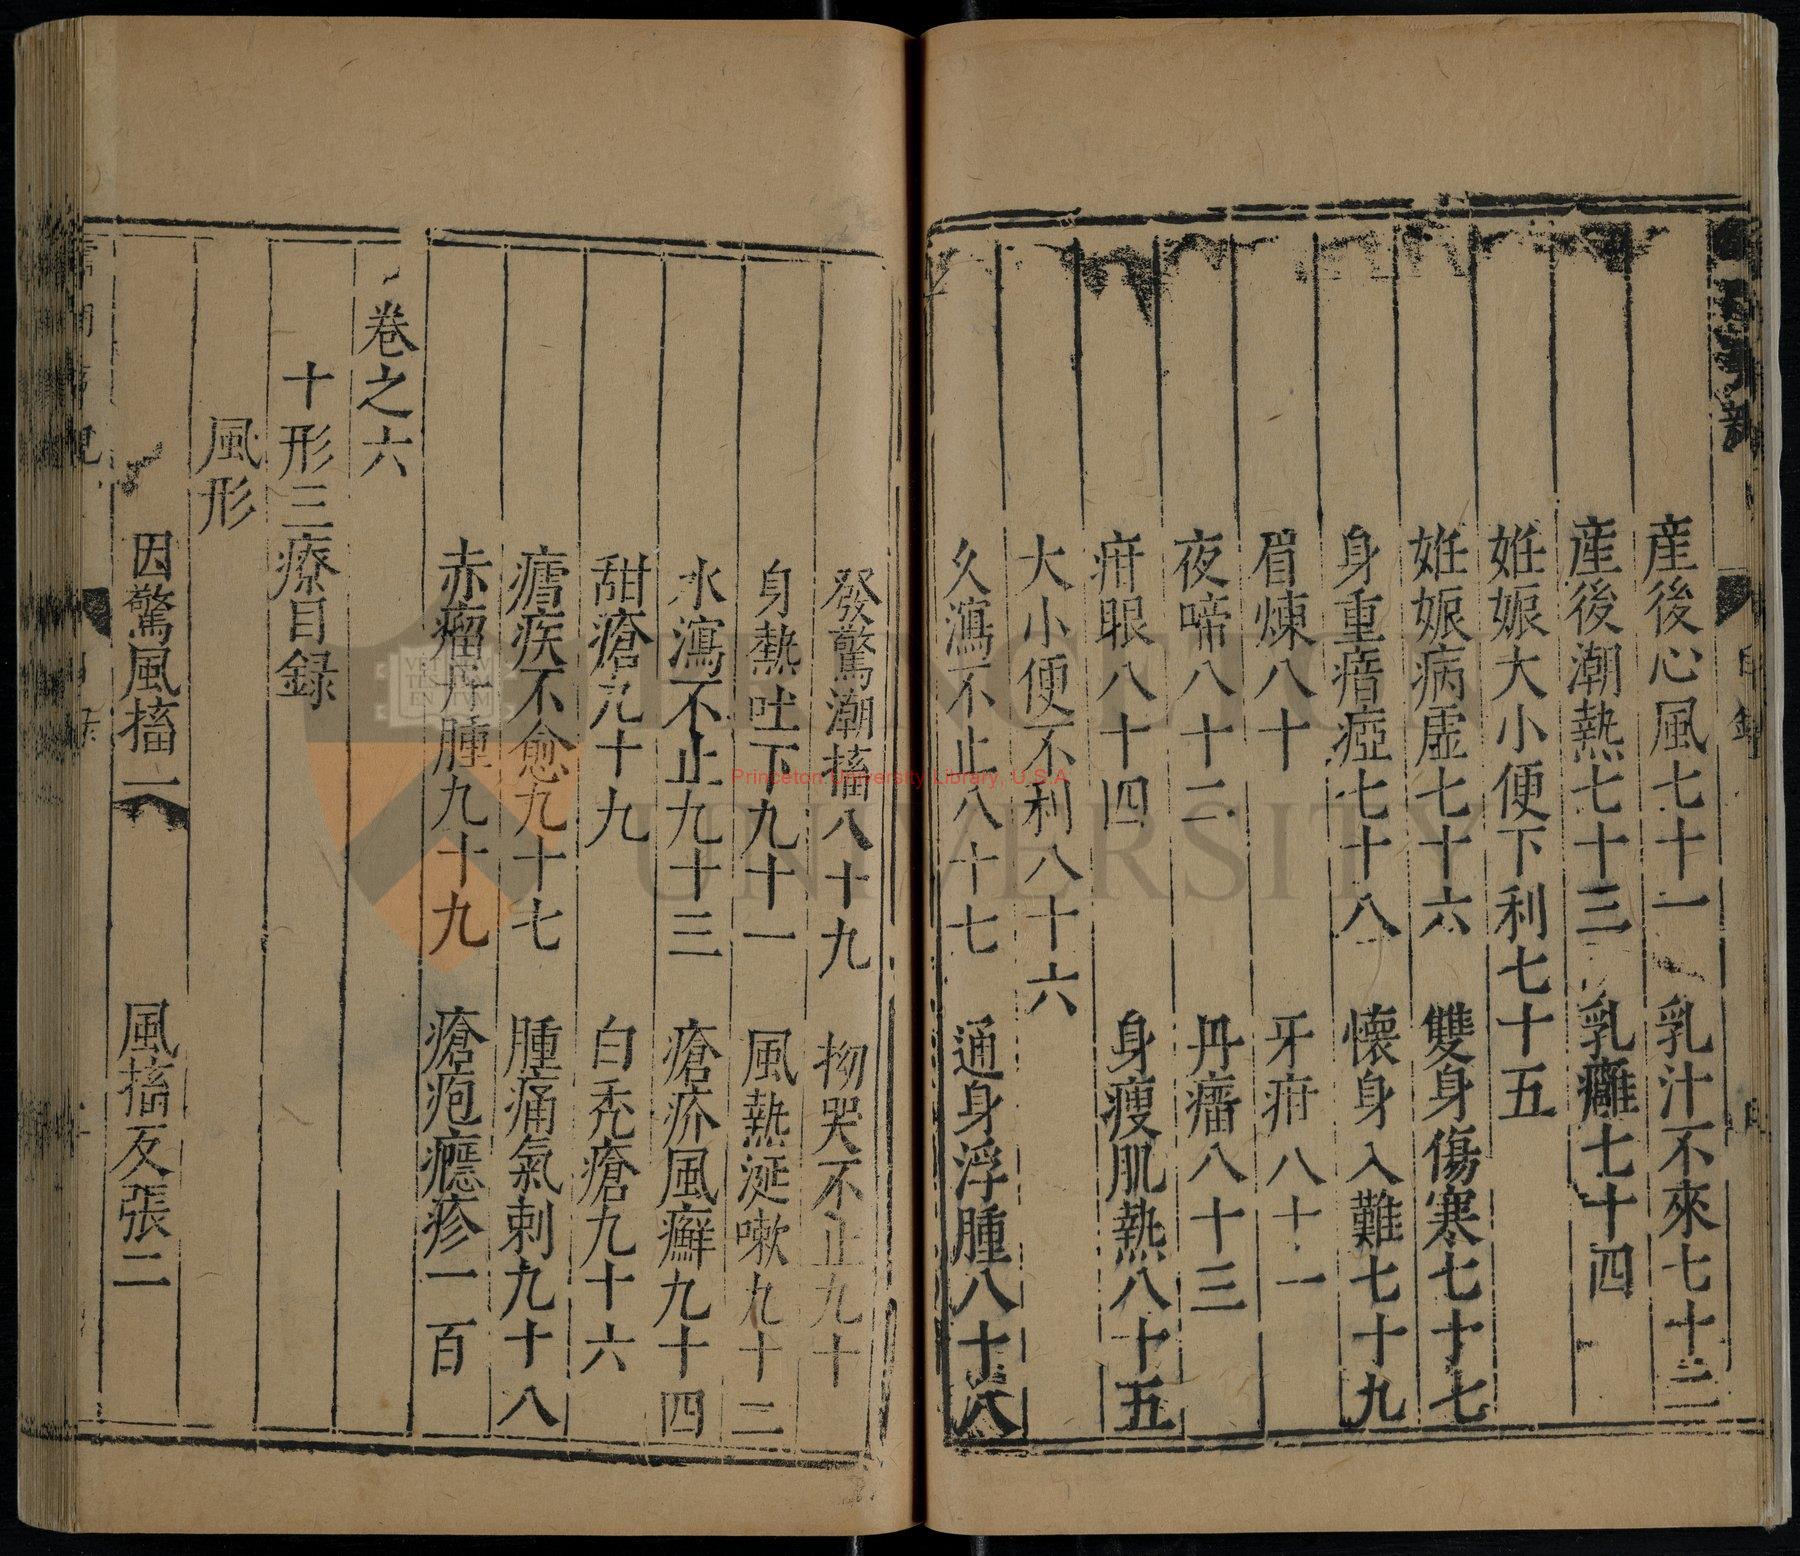 産後心風七十一 乳汁不來七十二
産後潮熱七十三 乳癰七十四
妊娠大小便下利七十五
妊娠病虚七十六 雙身傷寒七十七
身重瘖瘂七十八 懐身入難七十九
眉煉八十 牙疳八十一
夜啼八十二 丹瘤八十三
疳眼八十四 身瘦肌熱八十五
大小便不利八十六
久瀉不止八十七 通身浮腫八十八
發驚潮搐八十九 拗哭不止九十
身熱吐下九十一 風熱涎嗽九十二
水瀉不止九十三 瘡疥風癬九十四
甜瘡九十九 白禿瘡九十六
瘧疾不愈九十七 腫痛氣刺九十八
赤瘤腫九十九 瘡疱癮疹一百
卷之六
十形三療目録
風形
因驚風搐一 風搐反張二
Princeton University Library, U.S.A.
UNIVERSITY